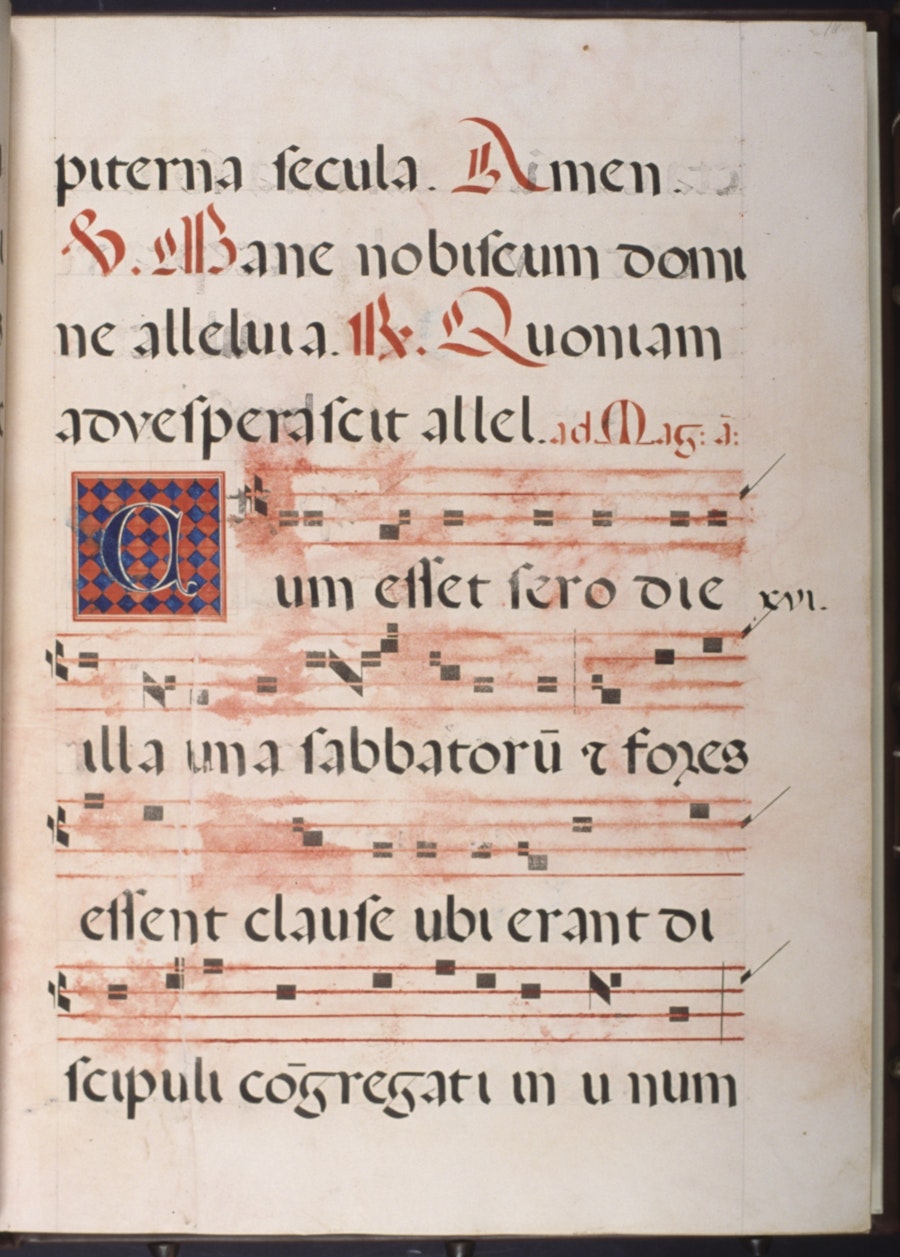 piterna secula. Amen.
V. Mane nobiscum domi
ne alleluia. R. Quoniam
advesperascit allel. ad Mag: ā:
Cum esset sero die
xvi.
illa una sabbatorū ⁊ fores
essent clause ubi erant di
scipuli cōgregati in unum